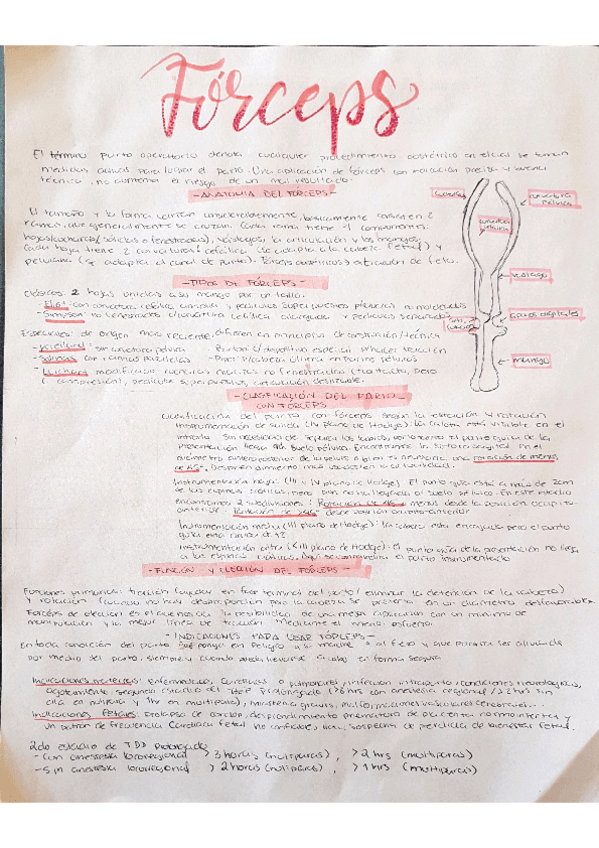 Fórceps
El término parto operatorio denota cualquier procedimiento obstétrico en el cual se toman
medidas activas para lograr el parto. Una aplicación de fórceps con indicación precisa y buena
técnica, no aumenta el riesgo de un mal resultado.
- ANATOMIA DEL FÓRCEPS -
El tamaño y la forma varían considerablemente, básicamente consisten en 2
ramas, que generalmente se cruzan. Cada rama tiene 4 componentes:
hojas/cucharas (sólidas o fenestradas), vástagos, la articulación y los mangos.
Cada hoja tiene 2 curvaturas: cefálica (se adapta a la cabeza fetal) y
pelviana (q adapta al canal de parto).
cuchara
curvatura pélvica
curvatura cefálica
vástago
articulación
apoyos digitales
mango
- TIPOS DE FÓRCEPS -
Clásicos: 2 hojas unidas a su mango por un tallo.
- Elliot: con curvatura cefálica amplia y pedículos superpuestos
- Simpson: no fenestrados c/curvatura cefálica alargada y pedículos separados
Especiales: de origen más reciente, difieren en principios de construcción/técnica
- Kielland: sin curvatura pélvica
- Barton: c/dispositivo especial p/hacer tracción
- Salinas: con ramas paralelas
- Piper: p/cabeza última en partos pélvicos
- Luikart:
- CLASIFICACIÓN DEL PARTO
CON FÓRCEPS
Clasificación del parto con fórceps según la estación y rotación
Instrumentación de salida (IV plano de Hodge): la calota está visible en el
introito sin necesidad de separar los labios,
rotación de menos
de 45°.
Instrumentación baja (III y IV plano de Hodge): El punto guía está a más de 2cm
de las espinas ciáticas, pero aún no ha llegado al suelo pélvico. En este medio
encontramos 2 subdivisiones: Rotación de 45° o menos desde la posición occipito
anterior. Rotación de >45° desde posición occipito-anterior.
Instrumentación media (III plano de Hodge): la cabeza está encajada pero el punto
guía está
Instrumentación alta (<III plano de Hodge): el punto guía de la presentación no llega
a las espinas ciáticas. Aquí se contraindica el parto instrumentado
- FUNCIÓN Y ELECCIÓN DEL FÓRCEPS -
Funciones primarias: tracción (ayudar en fase terminal del parto/eliminar la detención de la cabeza)
y rotación (cuando no hay desproporción pero la cabeza se presenta en un diámetro desfavorable).
Fórceps de elección es el que nos da la posibilidad de una mejor rotación con un mínimo de
manipulación y la mejor línea de tracción mediante el menor esfuerzo.
- INDICACIONES PARA USAR FÓRCEPS -
En toda condición del parto que ponga en peligro a la madre o al feto y que pararía a ser aliviada
por medio del parto, siempre y cuando pueda llevarse a cabo en forma segura.
Indicaciones maternas: enfermedades cardíacas o pulmonares, infección intraparto, condiciones neurológicas,
agotamiento, segundo estadio del TDP prolongado (>3 hrs con anestesia regional / >2 hrs sin
ella en nulípara y 1hr en multípara), miastenia gravis, malformaciones vasculares cerebrales...
Indicaciones Fetales: prolapso de cordón, desprendimiento prematuro de placenta normoinserta y
un patrón de frecuencia cardíaca fetal no confiable,
2do estadio de TDP prolongado
- con anestesia locorregional > 3 horas (nulíparas), > 2hrs (multíparas)
- Sin anestesia locorregional > 2 horas (nulíparas), > 1 hrs (multíparas)